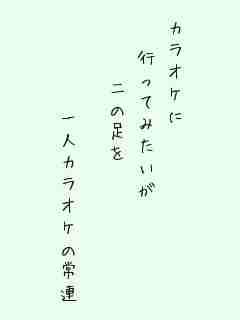 カラオケに
行ってみたいが
二の足を
一人カラオケの常連